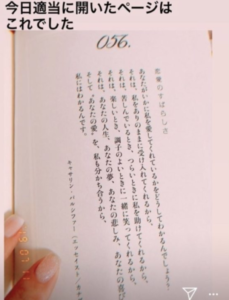 今日適当に開いたページは
これでした
056.
恋愛のすばらしさ
あなたがいかに私を愛してくれているかをどうしてわかるんでしょう
それは、私をありのままに受け入れてくれるから、
それは、苦しんでいるとき、つらいときに私を助けてくれるから、
それは、楽しいとき、調子のよいときに一緒に笑ってくれるから、
それは、あなたの人生、あなたの夢、あなたの悲しみ、あなたの喜び
そして〝あなたの愛〟を、私も分かち合うから。
私にはわかるんです。
キャサリン・パルツァー